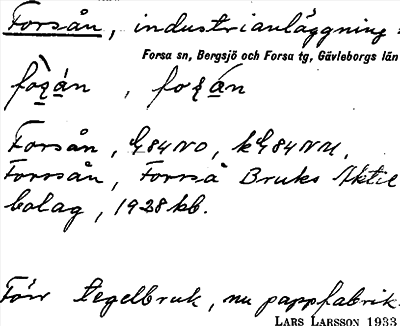 Forsån, industrianläggning.
Forsa sn, Bergsjö och Forsa tg, Gävleborgs län
Forsån, G84NO, kG84NU,
Forssån, Forrså Bruks Aktie
bolag, 1928 kb.
Förr tegelbruk, nu pappfabrik.
LARS LARSSON 1933